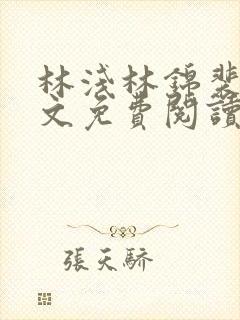 林淺林錦裴
文免費閱讀
張天驕